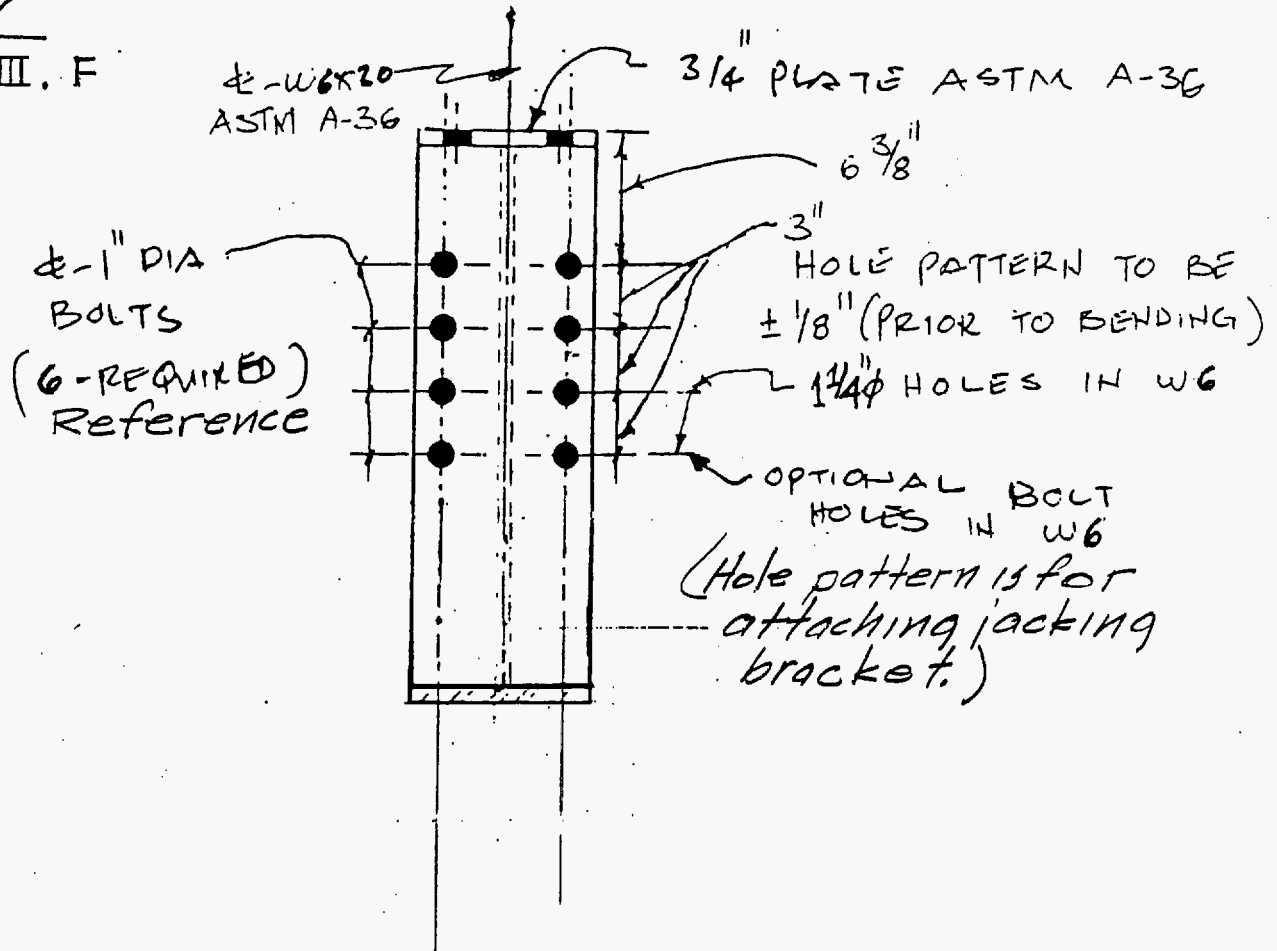 III. F
℄-W6X20
ASTM A-36
3/4" PLATE ASTM A-36
6 3/8"
3"
HOLE PATTERN TO BE
± 1/8" (PRIOR TO BENDING)
1 1/4"ϕ HOLES IN W6
℄-1" DIA
BOLTS
(6-REQUIRED)
Reference
OPTIONAL BOLT
HOLES IN W6
(Hole pattern is for
attaching jacking
bracket.)